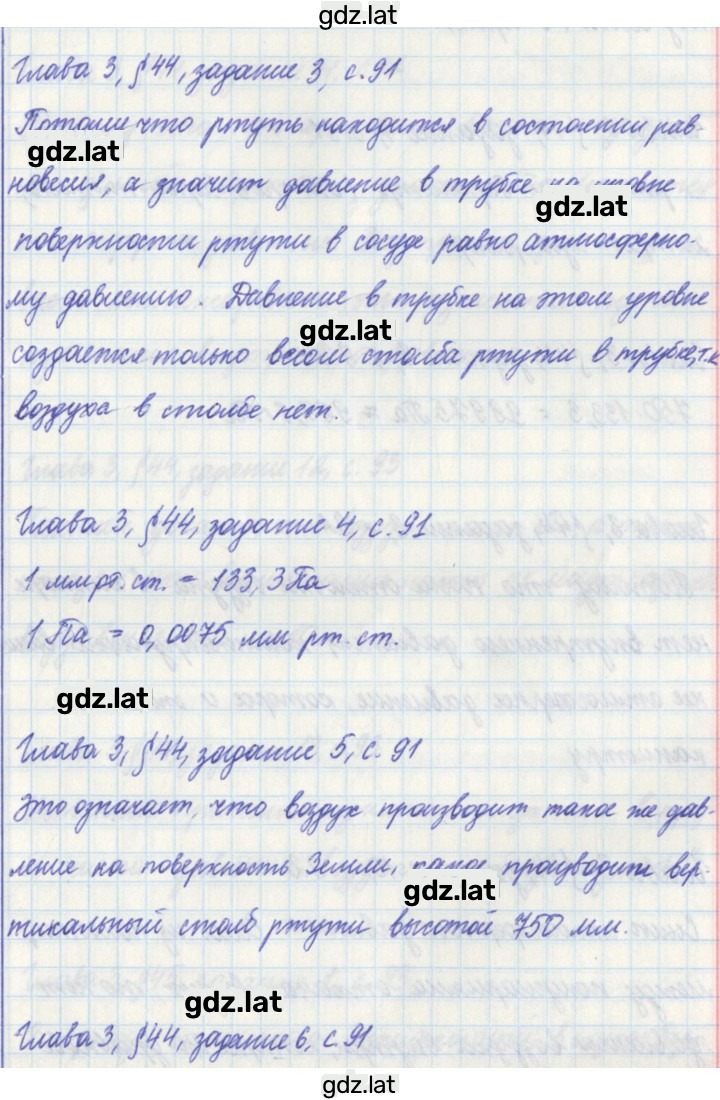 gdz.lat
Глава 3, §44, задание 3, с.91
Потому что ртуть находится в состоянии рав-
gdz.lat
новесия, а значит давление в трубке на уровне
gdz.lat
поверхности ртути в сосуде равно атмосферно-
му давлению. Давление в трубке на этом уровне
gdz.lat
создается только весом столба ртути в трубке, т.к
воздуха в столбе нет.
Глава 3, §44, задание 4, с.91
1 мм рт. ст. = 133,3 Па
1 Па = 0,0075 мм рт. ст.
gdz.lat
Глава 3, §44, задание 5, с.91
Это означает, что воздух производит такое же дав-
ление на поверхность Земли, какое производит вер-
gdz.lat
тикальный столб ртути высотой 750 мм.
gdz.lat
Глава 3, §44, задание 6, с 91
gdz.lat